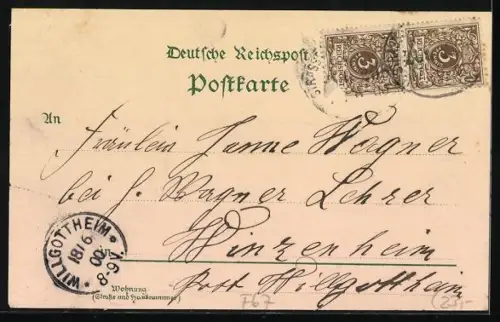 Deutsche Reichspost
Postkarte
3 3
An
Fräulein Janne Wagner
bei J. Wagner Lehrer
Winzenheim
Post Willgottheim
WILLGOTTHEIM
18 6
00
8-9V.
Wohnung
(Straße und Hausnummer)
F67
(25,-